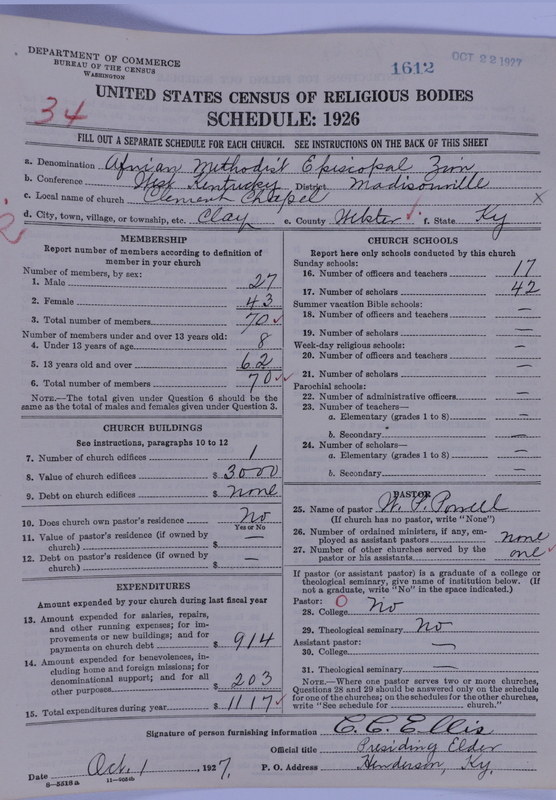 DEPARTMENT OF COMMERCE
BUREAU OF THE CENSUS
WASHINGTON
1612
OCT 22 1927
34
UNITED STATES CENSUS OF RELIGIOUS BODIES
SCHEDULE: 1926
FILL OUT A SEPARATE SCHEDULE FOR EACH CHURCH. SEE INSTRUCTIONS ON THE BACK OF THIS SHEET
a. Denomination African Methodist Episcopal Zion
b. Conference West Kentucky District Madisonville
c. Local name of church Clement Chapel X
d. City, town, village, or township, etc. Clay e. County Webster f. State Ky
MEMBERSHIP
Report number of members according to definition of
member in your church
Number of members, by sex:
1. Male 27
2. Female 43
3. Total number of members 70
Number of members under and over 13 years old:
4. Under 13 years of age 8
5. 13 years old and over 62
6. Total number of members 70
NOTE.—The total given under Question 6 should be
the same as the total of males and females given under Question 3.
CHURCH BUILDINGS
See instructions, paragraphs 10 to 12
7. Number of church edifices 1
8. Value of church edifices $ 3000
9. Debt on church edifices $ none
10. Does church own pastor's residence No
Yes or No
11. Value of pastor's residence (if owned by
church) $ —
12. Debt on pastor's residence (if owned by
church) $ —
EXPENDITURES
Amount expended by your church during last fiscal year
13. Amount expended for salaries, repairs,
and other running expenses; for im-
provements or new buildings; and for
payments on church debt $ 914
14. Amount expended for benevolences, in-
cluding home and foreign missions; for
denominational support; and for all
other purposes $ 203
15. Total expenditures during year $ 1117
CHURCH SCHOOLS
Report here only schools conducted by this church
Sunday schools:
16. Number of officers and teachers 17
17. Number of scholars 42
Summer vacation Bible schools:
18. Number of officers and teachers —
19. Number of scholars —
Week-day religious schools:
20. Number of officers and teachers —
21. Number of scholars —
Parochial schools:
22. Number of administrative officers —
23. Number of teachers—
a. Elementary (grades 1 to 8) —
b. Secondary —
24. Number of scholars—
a. Elementary (grades 1 to 8) —
b. Secondary —
PASTOR
25. Name of pastor W. P. Powell
(If church has no pastor, write "None")
26. Number of ordained ministers, if any, em-
ployed as assistant pastors none
27. Number of other churches served by the
pastor or his assistants one
If pastor (or assistant pastor) is a graduate of a college or
theological seminary, give name of institution below. (If
not a graduate, write "No" in the space indicated.)
Pastor: 0
28. College No
29. Theological seminary No
Assistant pastor:
30. College —
31. Theological seminary —
NOTE.—Where one pastor serves two or more churches,
Questions 28 and 29 should be answered only on the schedule
for one of the churches; on the schedules for the other churches,
write "See schedule for church."
Signature of person furnishing information C. C. Ellis
Official title Presiding Elder
Date Oct. 1, 1927. P. O. Address Henderson, Ky.
8—5518a